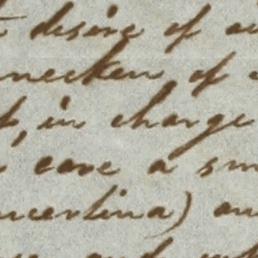 desire of
necken of
in charge
care a sm
ncertina) an